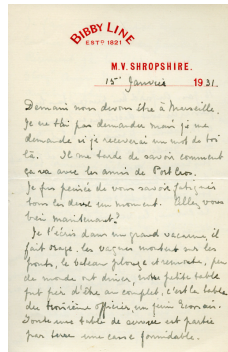 BIBBY LINE
ESTD 1821
M.V. SHROPSHIRE.
15 Janvier 1931
Demain nous devons être à Marseille.
Je ne t'ai pas demander mais je me
demande si je recevrai un mot de toi
là. Il me tarde de savoir comment
ça va avec les amis de Port
Je fus peinée de vous savoir
tous les deux un moment. Allez vous
bien maintenant?
Je t'écris dans un grand vacarme, il
fait orage. les vagues montent sur les
ponts, le bateau plonge et remonte, peu
de monde ont dîner, notre petite table
fut près d'être au complet, c'est la table
du troisième officier, un jeune Ecossais.
Toute une table de est partie
par terre une casse formidable.